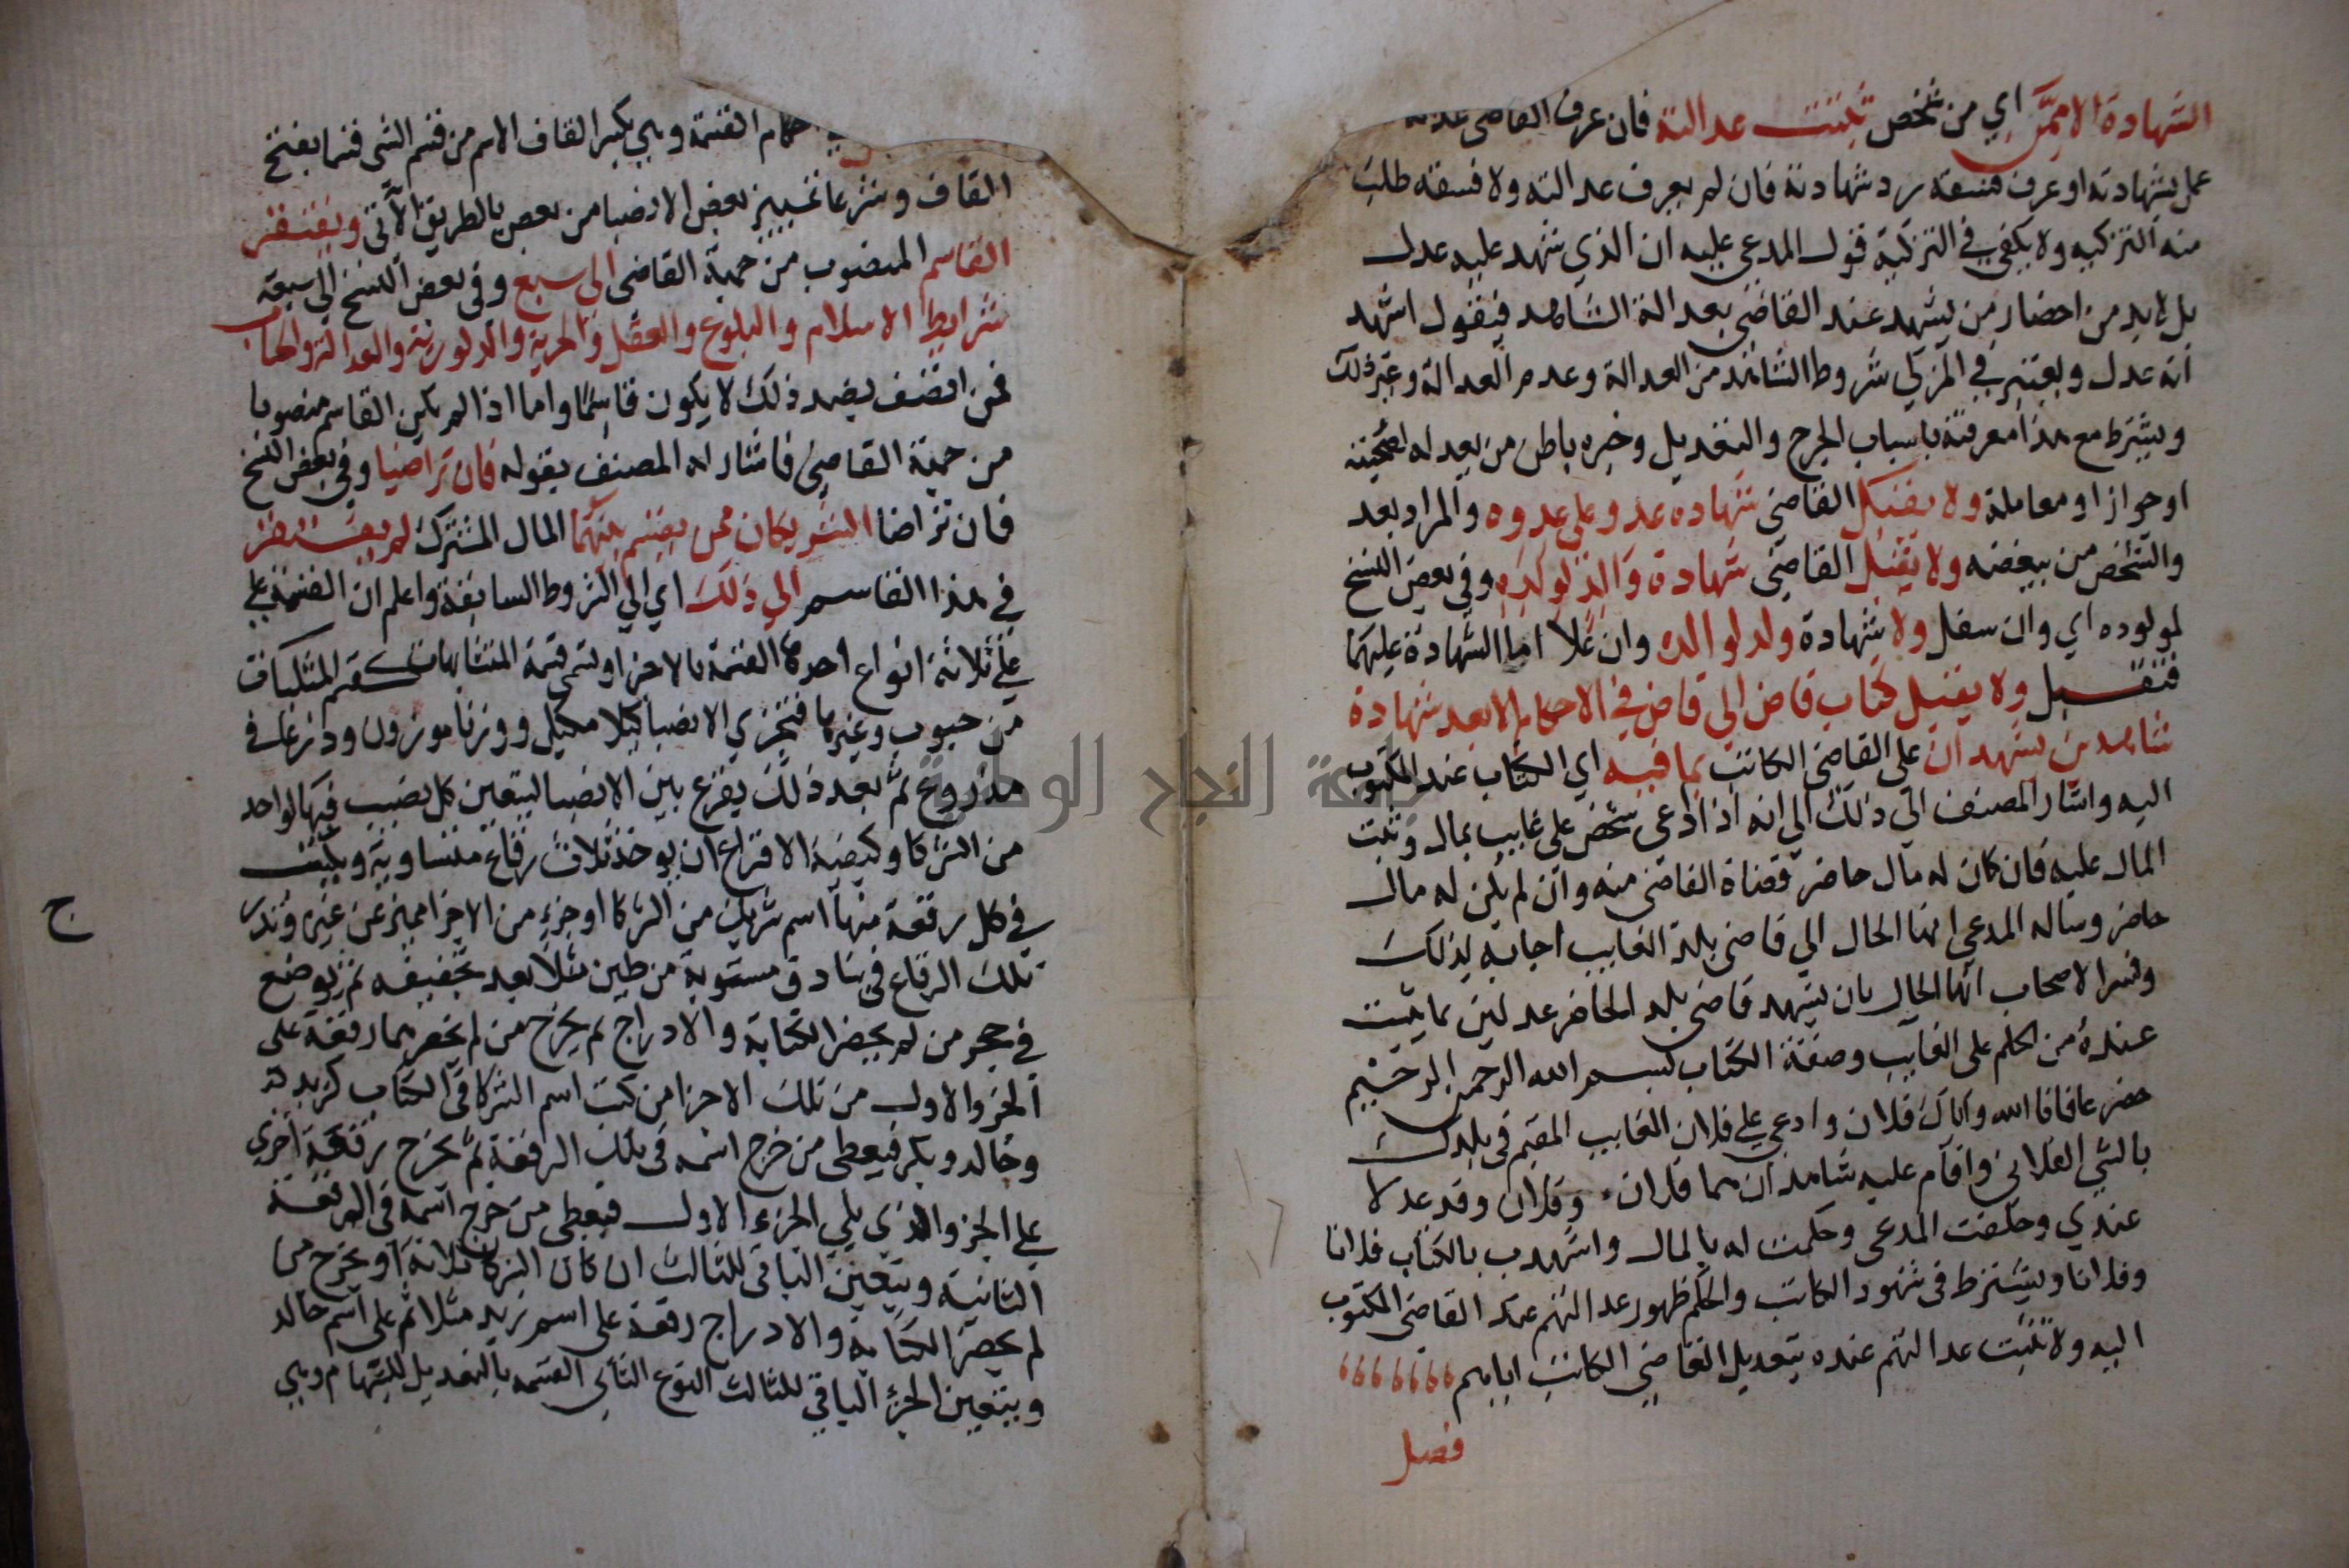 الشهادة الا ممن اي من شخص ثبتت عدالته فان عرف القاضي عدالته
عمل بشهادته او عرف فسقه رد شهادته فان لم يعرف عدالته ولا فسقه طلب
منه التزكيه ولا يكفي في التزكية قول المدعي عليه ان الذي شهد عليه عدل
بل لابد من احضار من يشهد عند القاضي بعدالة الشاهد فيقول اشهد
انه عدل ويعتبر في المزكي شروط الشاهد من العدالة وعدم العدالة وغير ذلك
ويشترط مع هذا معرفتة باسباب الجرح والتعديل وخبره باطن من يعدله لصحبته
او جوازا او معاملة ولا يقبل القاضي شهادة عدو على عدوه والمراد بعد
والشخص من يبغضه ولا يقبل القاضي شهادة والد لولده وفي بعض النسخ
لمولوده اي وان سفل ولا شهادة ولد لوالده وان علا اما الشهادة عليهما
فتقبل ولا يقبل كتاب قاض الي قاض في الاحكام الا بعد شهادة
شاهدين يشهدان على القاضي الكاتب بما فيه اي الكتاب عند المكتوب
اليه واشار المصنف الي ذلك الي انه اذا ادعي شخص على غايب بمال وثبت
المال عليه فان كان له مال حاضر قضاة القاضي منه وان لم يكن له مال
حاضر وساله المدعي انها الحال الي قاضي بلد الغايب اجابه لذلك
وفسر الاصحاب انها الحال بان يشهد قاضي بلد الحاضر عدلين بما يثبت
عنده من الحكم على الغايب وصفة الكتاب بسم الله الرحمن الرحيم
حضر عافانا الله واياك فلان وادعي علي فلان الغايب المقيم في بلدك
بالشي الفلاني واقام عليه شاهدان هما فلان وفلان وقد عدلا
عندي وحلفت المدعي وحكمت له بالمال واشهدت بالكتاب فلانا
وفلانا ويشترط في شهود الكاتب والحكم ظهور عدالتهم عند القاضي المكتوب
اليه ولا تثبت عدالتهم عنده بتعديل القاضي الكاتب اياهم
فصل
حكام القسمة وهي بكسر القاف الاسم من قسم الشي قسما بفتح
القاف وشرعا تمييز بعض الانصبا من بعض بالطريق الاتي ويفتقر
القاسم المنصوب من جهة القاضي الي سبع وفي بعض النسخ الي سبعة
شرايط الاسلام والبلوغ والعقل والحرية والذكورية والعدالة والحساب
فمن اتصف بضد ذلك لا يكون قاسما واما اذا لم يكن القاسم منصوبا
من جهة القاضي فاشار له المصنف بقوله فان تراضيا وفي بعض النسخ
فان تراضا الشريكان بمن يقسم بينهما المال المشترك لم يفتقر
في هذا القاسم الي ذلك اي الي الشروط السابقة واعلم ان القسمة علي
علي ثلاثة انواع احدها القسمة بالاجزا وتسمي قسمة المتشابهات كقسم المثليات
من حبوب وغيرها فتجزي الانصبا كيلا مكيل ووزنا موزون وذرعا في
مذروع ثم بعد ذلك يقرع بين الانصبا ليتعين كل نصيب فيها لواحد
من الشركا وكيفية الاقتراع ان يوخذ ثلاث رقاع متساوية ويكتب
في كل رقعة منها اسم شريك من الشركا او جزء من الاجزا مميز عن غيره وتدرج
تلك الرقاع في بنادق مستوية من طين مثلا بعد تجفيفه ثم توضع
في حجر من لم يحضر الكتابة والادراج ثم يخرج من لم يحضرهما رقعة على
الجزو الاول من تلك الاجزا من كتب اسم الشركا في الكتاب كزيد
وخالد وبكر فيعطى من خرج اسمه في تلك الرقعة ثم يخرج رقعة اخري
علي الجزو الذي يلي الجزء الاول فيعطي من خرج اسمه في الرقعة
الثانية ويتعين الباقي للثالث ان كان الشركا ثلاثة او يخرج من
لم يحضر الكتابة والادراج رقعة على اسم زيد مثلا ثم على اسم خالد
ويتعين الجزؤ الباقي للثالث النوع الثاني القسمه بالتعديل للسهام وهي
ج